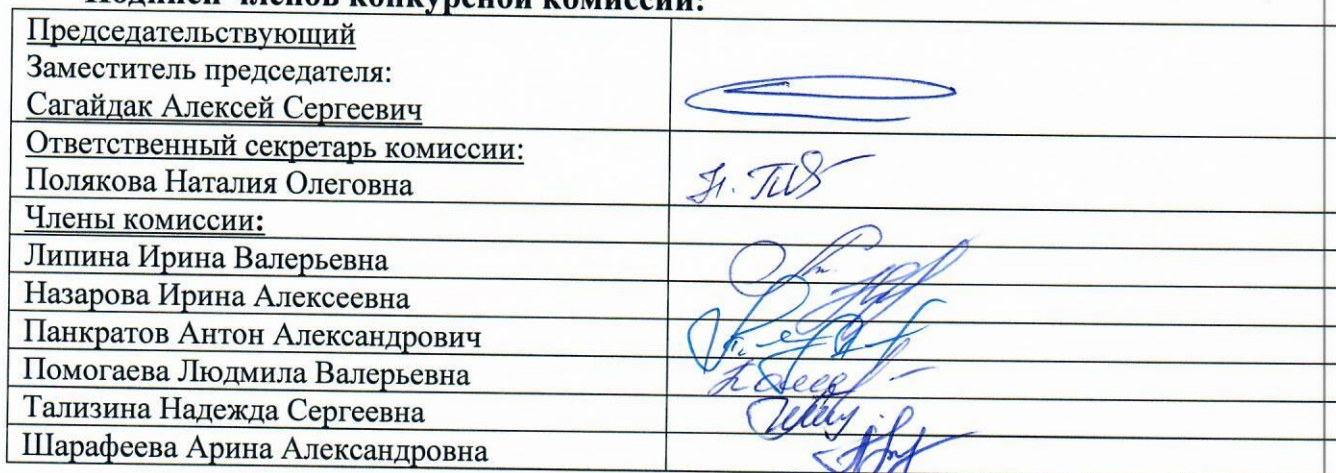 Подписи членов конкурсной комиссии:
Председательствующий
Заместитель председателя:
Сагайдак Алексей Сергеевич
Ответственный секретарь комиссии:
Полякова Наталия Олеговна
Члены комиссии:
Липина Ирина Валерьевна
Назарова Ирина Алексеевна
Панкратов Антон Александрович
Помогаева Людмила Валерьевна
Тализина Надежда Сергеевна
Шарафеева Арина Александровна